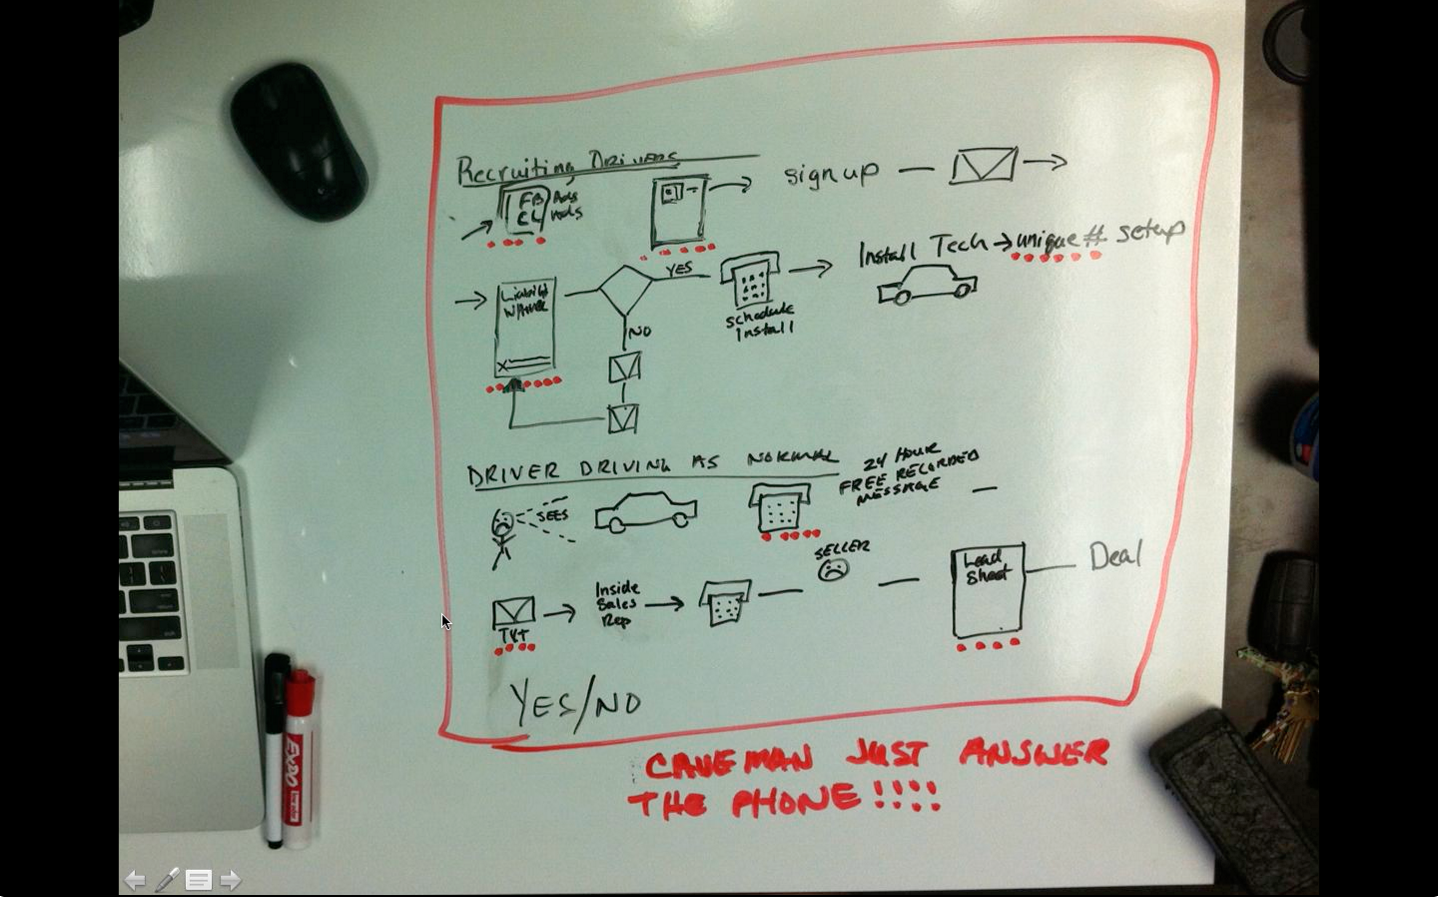 Recruiting Drivers
FB Ads
CL Ads
sign up
YES
NO
schedule
Install
Install Tech → unique # setup
X
DRIVER DRIVING AS NORMAL
SEES
24 HOUR
FREE RECORDED
MESSAGE
TXT
Inside
Sales
Rep
SELLER
Lead
Sheet
Deal
YES/NO
CAVEMAN JUST ANSWER
THE PHONE!!!!
EXPO